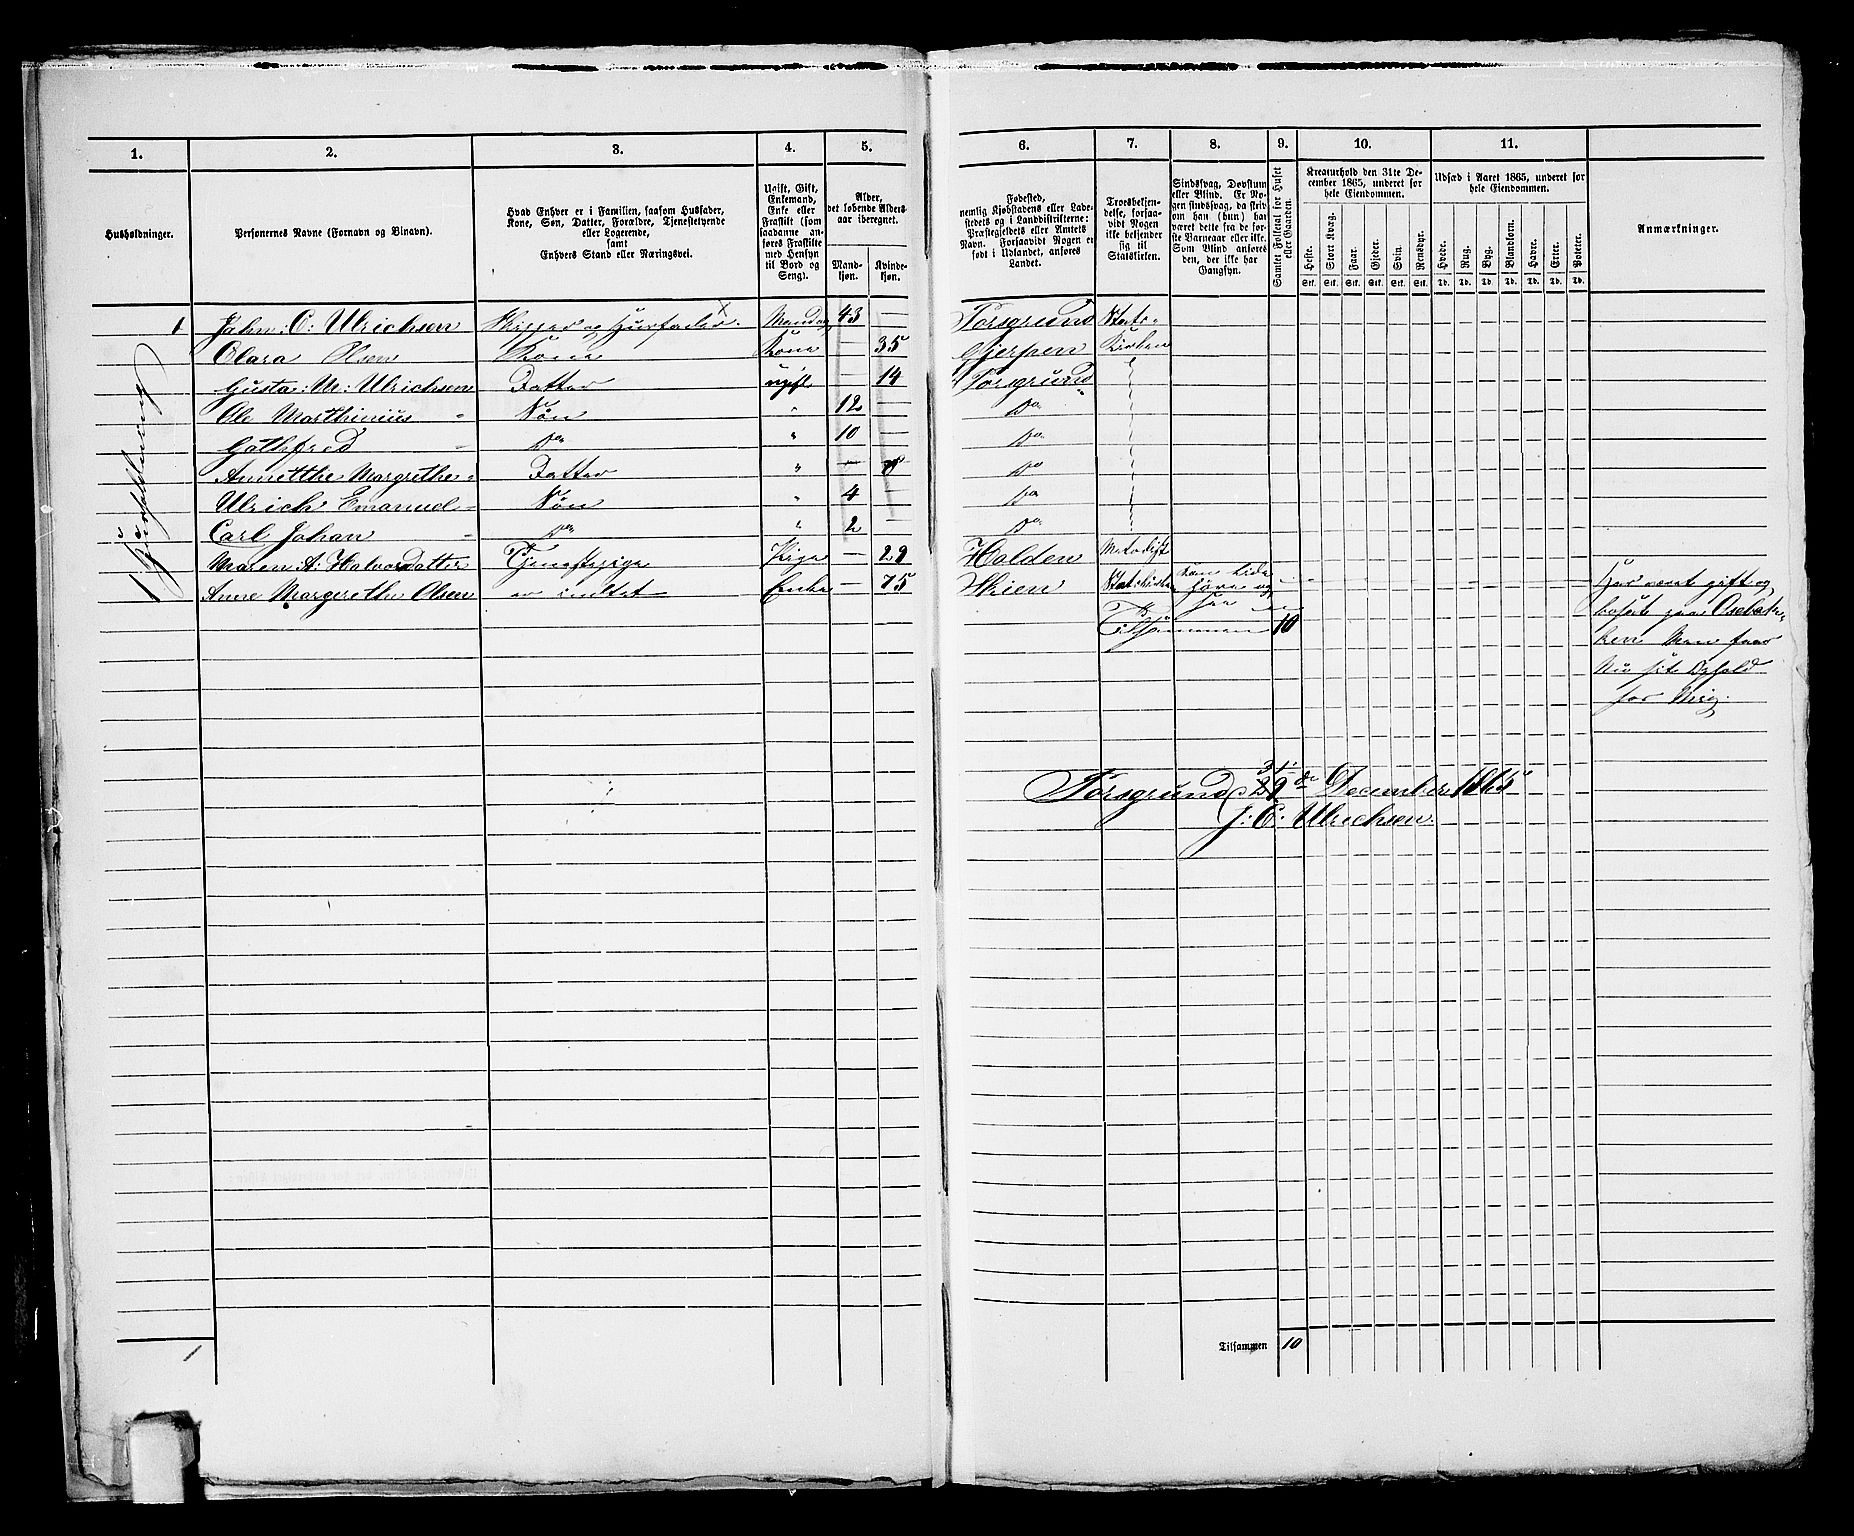 1.
2.
3.
4.
5.
6.
7.
8.
9.
10.
11.
Husholdninger.
Personernes Navne (Fornavn og Binavn).
Hvad Enhver er i Familien, saasom Husfader,
Kone, Søn, Datter, Forældre, Tjenestetyende
eller Logerende,
samt
Enhvers Stand eller Næringsvei.
Ugift, Gift,
Enkemand,
Enke eller
Fraskilt (som
saadanne an-
føres Fraskilte
med Hensyn
til Bord og
Seng).
Alder,
det løbende Alders-
aar iberegnet.
Mand-
kjøn.
Kvinde-
kjøn.
Fødested,
nemlig Kjøbstadens eller Lade-
stedets og i Landdistrikterne:
Præstegjeldets eller Amtets
Navn. Forsaavidt Nogen er
født i Udlandet, anføres
Landet.
Troesbekjen-
delse, forsaa-
vidt Nogen
ikke bekjender
sig til
Statskirken.
Sindssvag, Døvstum
eller Blind. Er No-
gen sindssvag, da skriv
om han (hun) har
været dette fra de før-
ste Barneaar eller ikke.
Som Blind anføres
den, der ikke har
Gangsyn.
Samlet Folketal for Huset
eller Gaarden.
Kreaturhold den 31te De-
cember 1865, underet for
hele Eiendommen.
Heste.
Stort Kvæg.
Faar.
Gjeder.
Svin.
Rensdyr.
Stk. Stk. Stk. Stk. Stk. Stk.
Udsæd i Aaret 1865, underet for
hele Eiendommen.
Hvede.
Rug.
Byg.
Blandkorn.
Havre.
Erter.
Poteter.
Td. Td. Td. Td. Td. Td. Td.
Anmærkninger.
1 Huusholdning
1 John: C: Ulrichson Skipper og Husfader. 43 — Porsgrund Stats-
Clara Olsen Kone Kone — 35 Gjerpen Kirken
Gusta: M: Ulrichson Datter ugift — 14 Porsgrund
Ole Marthinius " Søn " 12 — Do
Gothfred " Do " 10 — Do
Annetthe Margrethe " Datter " — Do
Ulrich Emanuel " Søn " 4 — Do
Carl Johan " Do " 2 — Do
Maren: A: Halvorsdatter Tjenestepige Pige — 29 Holden Metodist
Anne Margrethe Olsen er intet Enke — 75 Skien Statskirken
Tilsammen 10
Har været gift og
bosat paa
Men faar
Nu sit Ophold
for Mig.
Porsgrund 31 29 de December 1865
J: C: Ulrichson.
1
Tilsammen 10